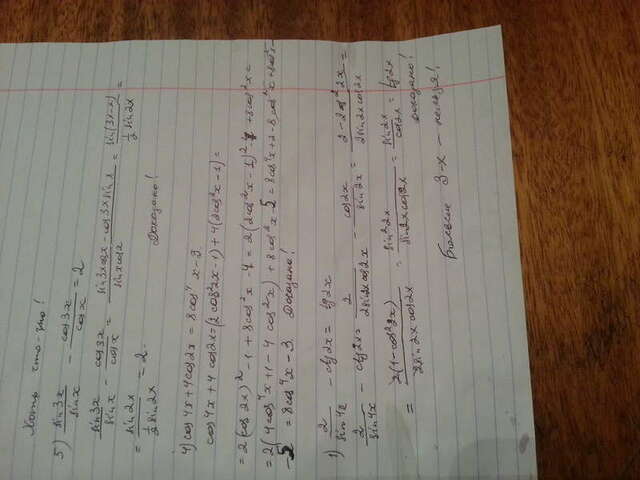 Хоть что-то!
5) sin3x/sinx - cos3x/cosx = 2
sin3x/sinx - cos3x/cosx = (sin3xcosx - cos3x sinx)/(sinxcosx) = sin(3x-x)/(1/2 sin2x) =
= sin2x/(1/2 sin2x) = 2. Доказано!
4) cos4x+4cos2x = 8cos⁴x-3.
cos4x+4cos2x=(2cos²2x-1)+4(2cos²x-1)=
=2(cos2x)²-1+8cos²x-4=2(2cos²x-1)²-5+8cos²x=
=2(4cos⁴x+1-4cos²x)+8cos²x-5=8cos⁴x+2-8cos²x+8cos²x-
-5=8cos⁴x-3. Доказано!
1) 2/sin4x - ctg2x = tg2x
2/sin4x - ctg2x = 2/(2sin2xcos2x) - cos2x/sin2x = (2-2cos²2x)/(2sin2xcos2x) =
= 2(1-cos²2x)/(2sin2xcos2x) = sin²2x/(sin2xcos2x) = sin2x/cos2x = tg2x
Доказано!
Больше 3-х - нельзя!